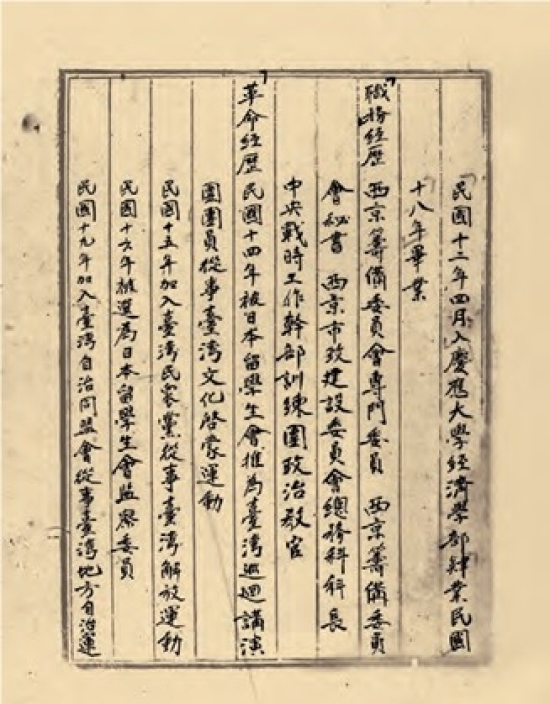 民國十二年四月入慶應大學經濟學部肄業民國
十八年畢業
職務經歷 西京籌備委員會專門委員 西京籌備委員
會秘書 西京市政建設委員會總務科科長
中央戰時工作幹部訓練團政治教官
革命經歷 民國十四年被日本留學生會推為臺灣巡迴講演
團團員從事臺灣文化啓蒙運動
民國十五年加入臺灣民眾黨從事臺灣解放運動
民國十六年被選為日本留學生會監察委員
民國十九年加入臺灣自治同盟會從事臺灣地方自治運